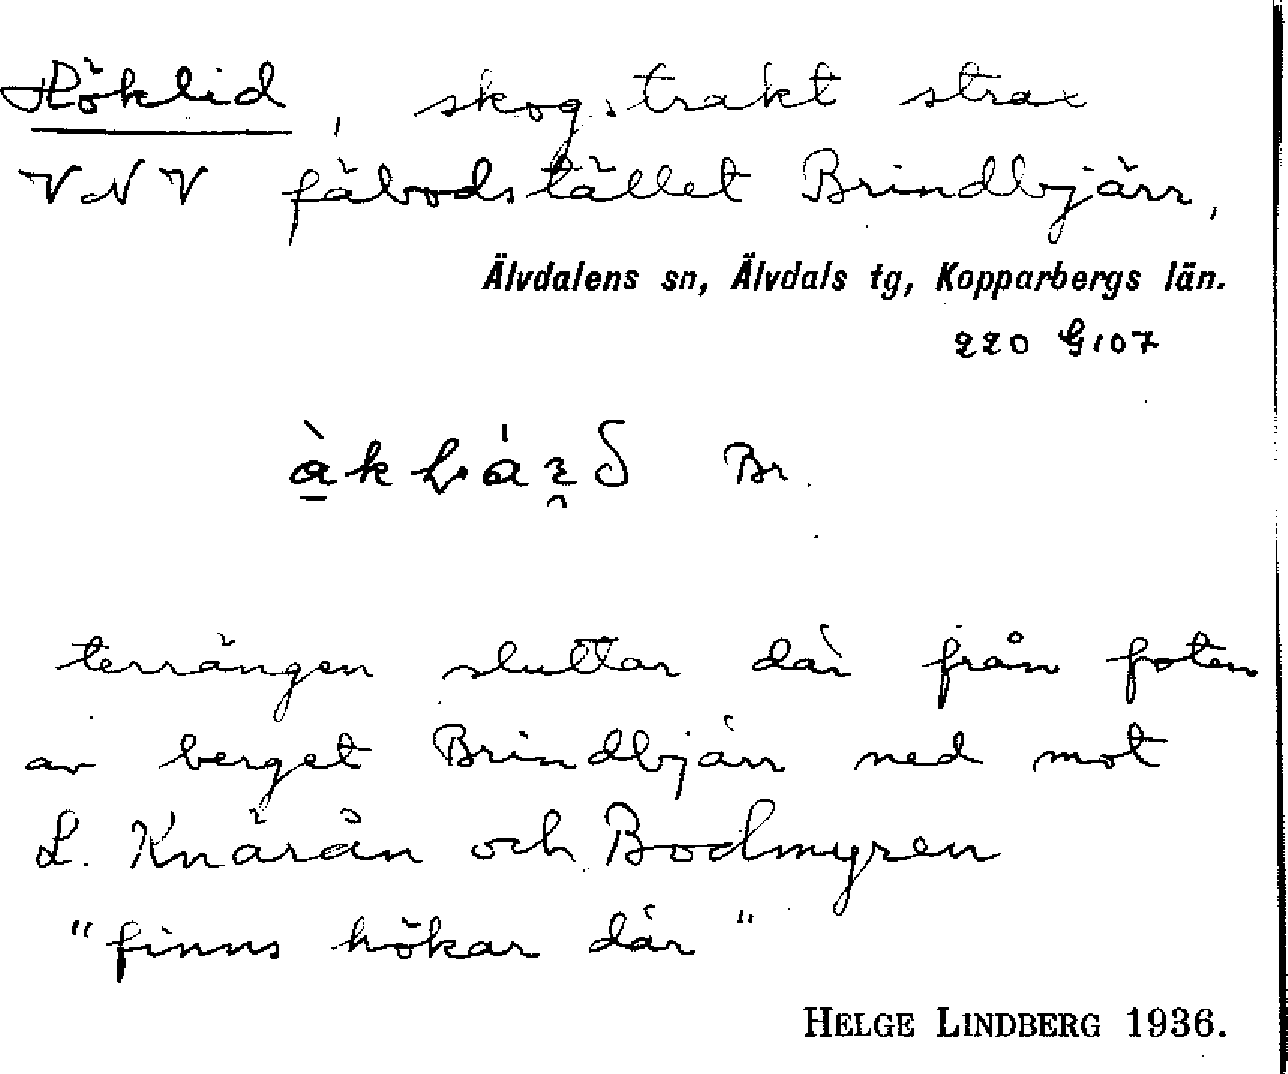 Höklid, skog, trakt strax
VNV fäbodstället Brindbjärr,
Älvdalens sn, Älvdals tg, Kopparbergs län.
220 G107
Br.
terrängen sluttar där från foten
av berget Brindbjärr ned mot
L. Knärån och Bodmyren
"finns hökar där"
HELGE LINDBERG 1936.